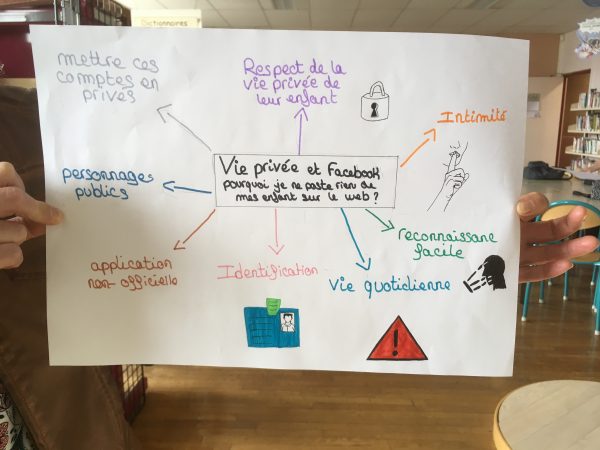 Dictionnaires
mettre ces
comptes en
privés
Respect de la
vie privée de
leur enfant
Intimité
Vie privée et Facebook
pourquoi je ne poste rien de
mes enfant sur le web?
personnages
publics
reconnaissane
facile
application
non-officielle
Identification
Vie quotidienne